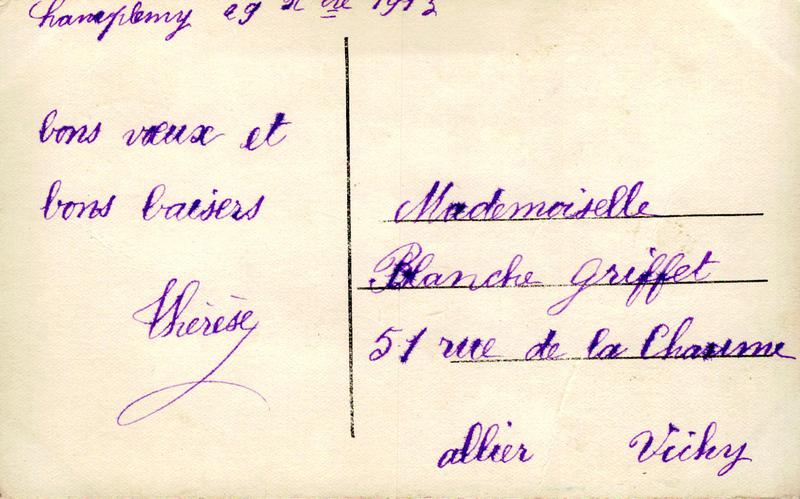 Champlemy 29 Xbre 1913
bons vœux et
bons baisers
Thérèse
Mademoiselle
Blanche Griffet
51 rue de la Chaume
allier Vichy